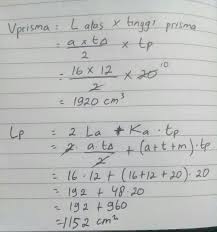 Vprisma : L alas × tinggi prisma
= a × t△ / 2 × tp
= 16 × 12 / 2 × 20 10
= 1920 cm³
Lp = 2 La + Ka . tp
= 2 a.t△ / 2 + (a+t+m) . tp
= 16 . 12 + (16+12+20) . 20
= 192 + 48.20
= 192 + 960
= 1152 cm²